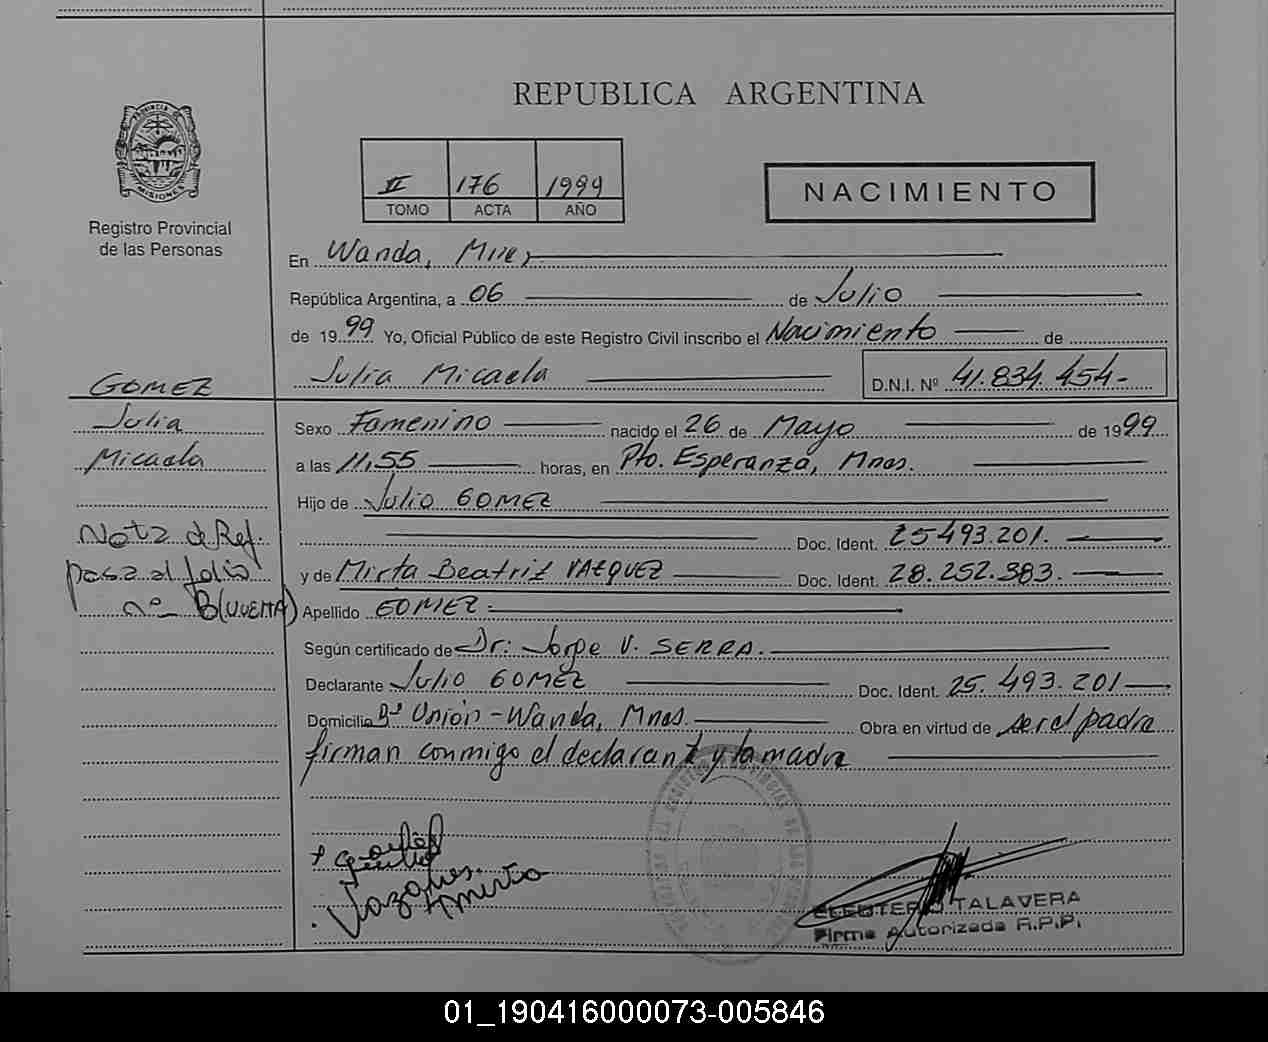 REPUBLICA ARGENTINA
PROVINCIA DE MISIONES
Registro Provincial
de las Personas
II 176 1999
TOMO ACTA AÑO
NACIMIENTO
En Wanda, Mnes
República Argentina, a 06 de Julio
de 1999 Yo, Oficial Público de este Registro Civil inscribo el Nacimiento de
Julia Micaela D.N.I. Nº 41.834.454-
GOMEZ
Julia
Micaela
Nota de Ref.
pasa al folio
nº B(VUELTA)
Sexo Famenino nacido el 26 de Mayo de 1999
a las 11,55 horas, en Pto. Esperanza, Mnes.
Hijo de Julio GOMEZ
Doc. Ident. 25.493.201.
y de Mirta Beatriz VAZQUEZ Doc. Ident. 28.252.383.
Apellido GOMEZ.
Según certificado de Dr. Jorge V. SERRA.
Declarante Julio GOMEZ Doc. Ident. 25.493.201
Domicilio Bº Unión - Wanda, Mnes. Obra en virtud de ser el padre
firman conmigo el declarant y la madre
Vazques mirta
ELEUTERIO TALAVERA
Firma Autorizada R.P.P.
01_190416000073-005846